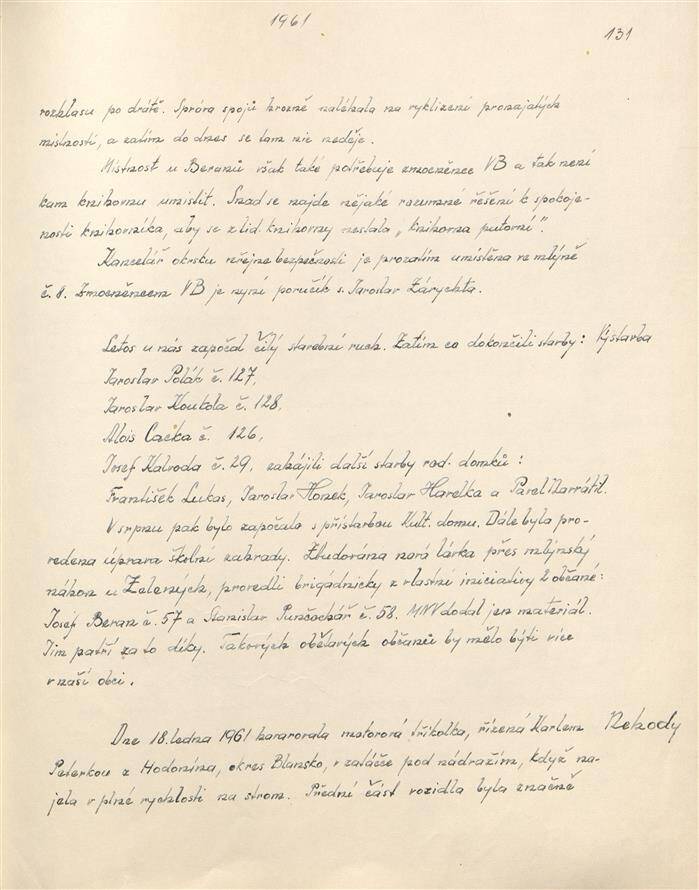 1961
131
rozhlasu po drátě. Správa spojů hrozně naléhala na vyklizení pronajatých
místností, a zatím do dnes se tam nic neděje.
Místnost u Beranů však také potřebuje zmocněnce VB a tak není
kam knihovnu umístit. Snad se najde nějaké rozumné řešení k spokoje-
nosti knihovníka, aby se z lid. knihovny nestala „knihovna putovní".
Kancelář okrsku veřejné bezpečnosti je prozatím umístěna ve mlýně
č. 8. Zmocněncem VB je nyní poručík s. Jaroslav Zárychta.
Letos u nás započal čilý stavební ruch. Zatím co dokončili stavby: Výstavba
Jaroslav Polák č. 127,
Jaroslav Koukola č. 128,
Alois Cacka č. 126,
Josef Kalvoda č. 29, zahájili další stavby rod. domků:
František Lukas, Jaroslav Honek, Jaroslav Havelka a Pavel Navrátil.
V srpnu pak bylo započato s přístavbou Kult. domu. Dále byla pro-
vedena úprava školní zahrady. Zbudována nová lávka přes mlýnský
náhon u Zelených, provedli brigádnicky z vlastní iniciativy 2 občané:
Josef Beran č. 57 a Stanislav Punčochář č. 58. MNV dodal jen materiál.
Jim patří za to díky. Takových obětavých občanů by mělo býti více
v naší obci.
Dne 18. ledna 1961 havarovala motorová tříkolka, řízená Karlem Nehody
Peterkou z Hodonína, okres Blansko, v zatáčce pod nádražím, když na-
jela v plné rychlosti na strom. Přední část vozidla byla značně